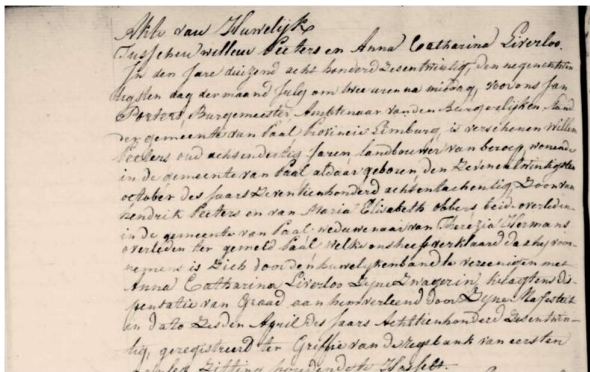 Akte van Huwelijk
Tusschen willem Peeters en Anna Catharina Liverloo.
In den jare duizend acht honderd zesentwintig, den negenentwin
tigsten dag der maand july om twee uren na middag, voor ons Jan
Porters, Burgemeester, Amptenaar van den Burgerlijken stand
der gemeente van Paal Provincie Limburg, is verschenen Willem
Peeters oud achsendertig jaren landbouwer van beroep, wonende
in de gemeente van Paal aldaar geboren den zevenentwintigsten
october des jaars zeventienhonderd achsentachentig, Zoon van
hendrik Peeters en van Maria Elisabeth obbers beide overleden
in de gemeente van Paal, weduwenaar van Therezia Hermans
overleden ter gemeld Paal welke ons heeft verklaard dat hij voor
nemens is Zich door den huwelijken band te vereenigen met
Anna Catharina Liverloo Zijne Zwagerin, krachtens dis
pentatie van Graad aan hem verleend door Zijne Majesteit
en dato Zesden April des jaars Achttienhonderd Zesentwin
tig, geregistreerd ter Griffie van de regtbank van eersten
Zitting houdende te Hasselt.